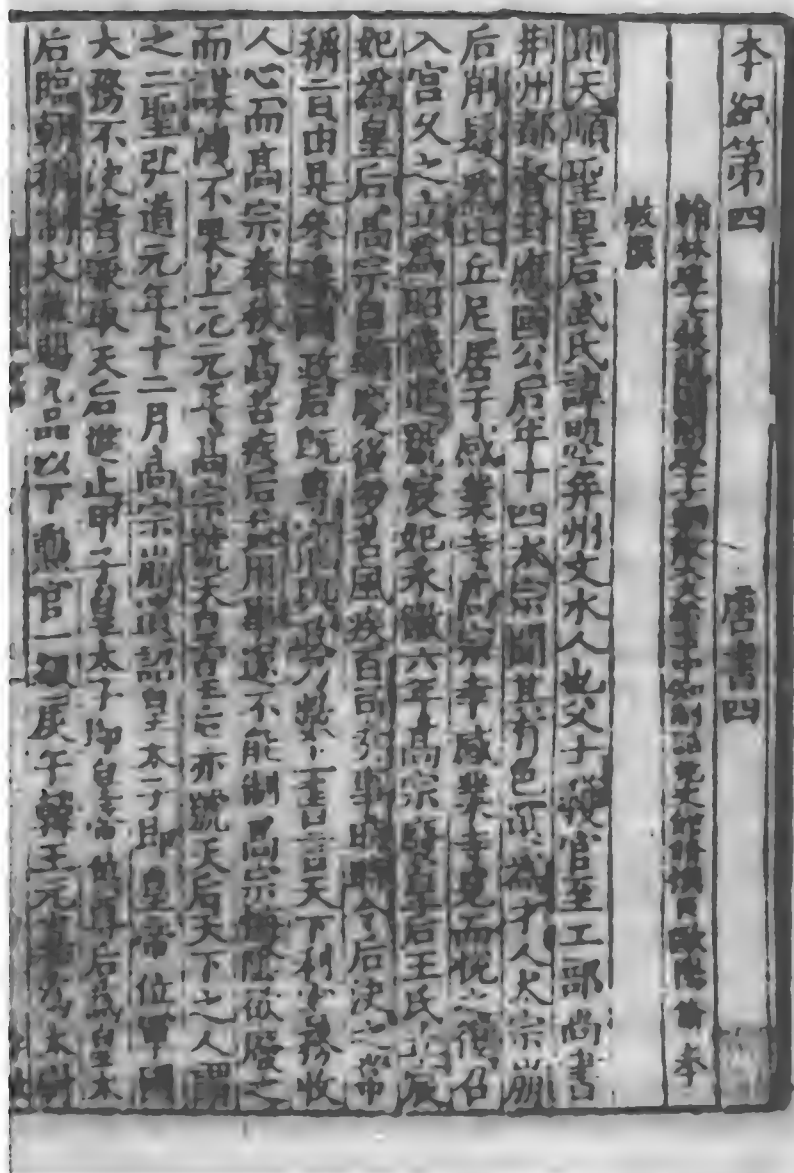 本紀第四 唐書四
翰林學士兼龍圖閣學士朝散大夫給事中知制誥充史館脩撰臣歐陽脩奉
敕撰
則天順聖皇后武氏諱曌并州文水人也父士彠官至工部尚書
荊州都督封應國公后年十四太宗聞其有色選為才人太宗崩
后削髮爲比丘尼居于感業寺高宗幸感業寺見而悅之復召
入宮久之立爲昭儀進號宸妃永徽六年高宗廢皇后王氏立宸
妃爲皇后高宗自顯慶後多苦風疾百司奏事時時令后決之常
稱旨由是參豫國政后既專寵與政乃數上書言天下利害務收
人心而高宗春秋高苦疾后益用事遂不能制高宗悔陰欲廢之
而謀洩不果上元元年高宗號天皇皇后亦號天后天下之人謂
之二聖弘道元年十二月高宗崩遺詔皇太子即皇帝位軍國
大務不決者兼取天后進止甲子皇太子即皇帝位尊后爲皇太
后臨朝稱制大赦賜九品以下勳官一級庚午韓王元嘉爲太尉